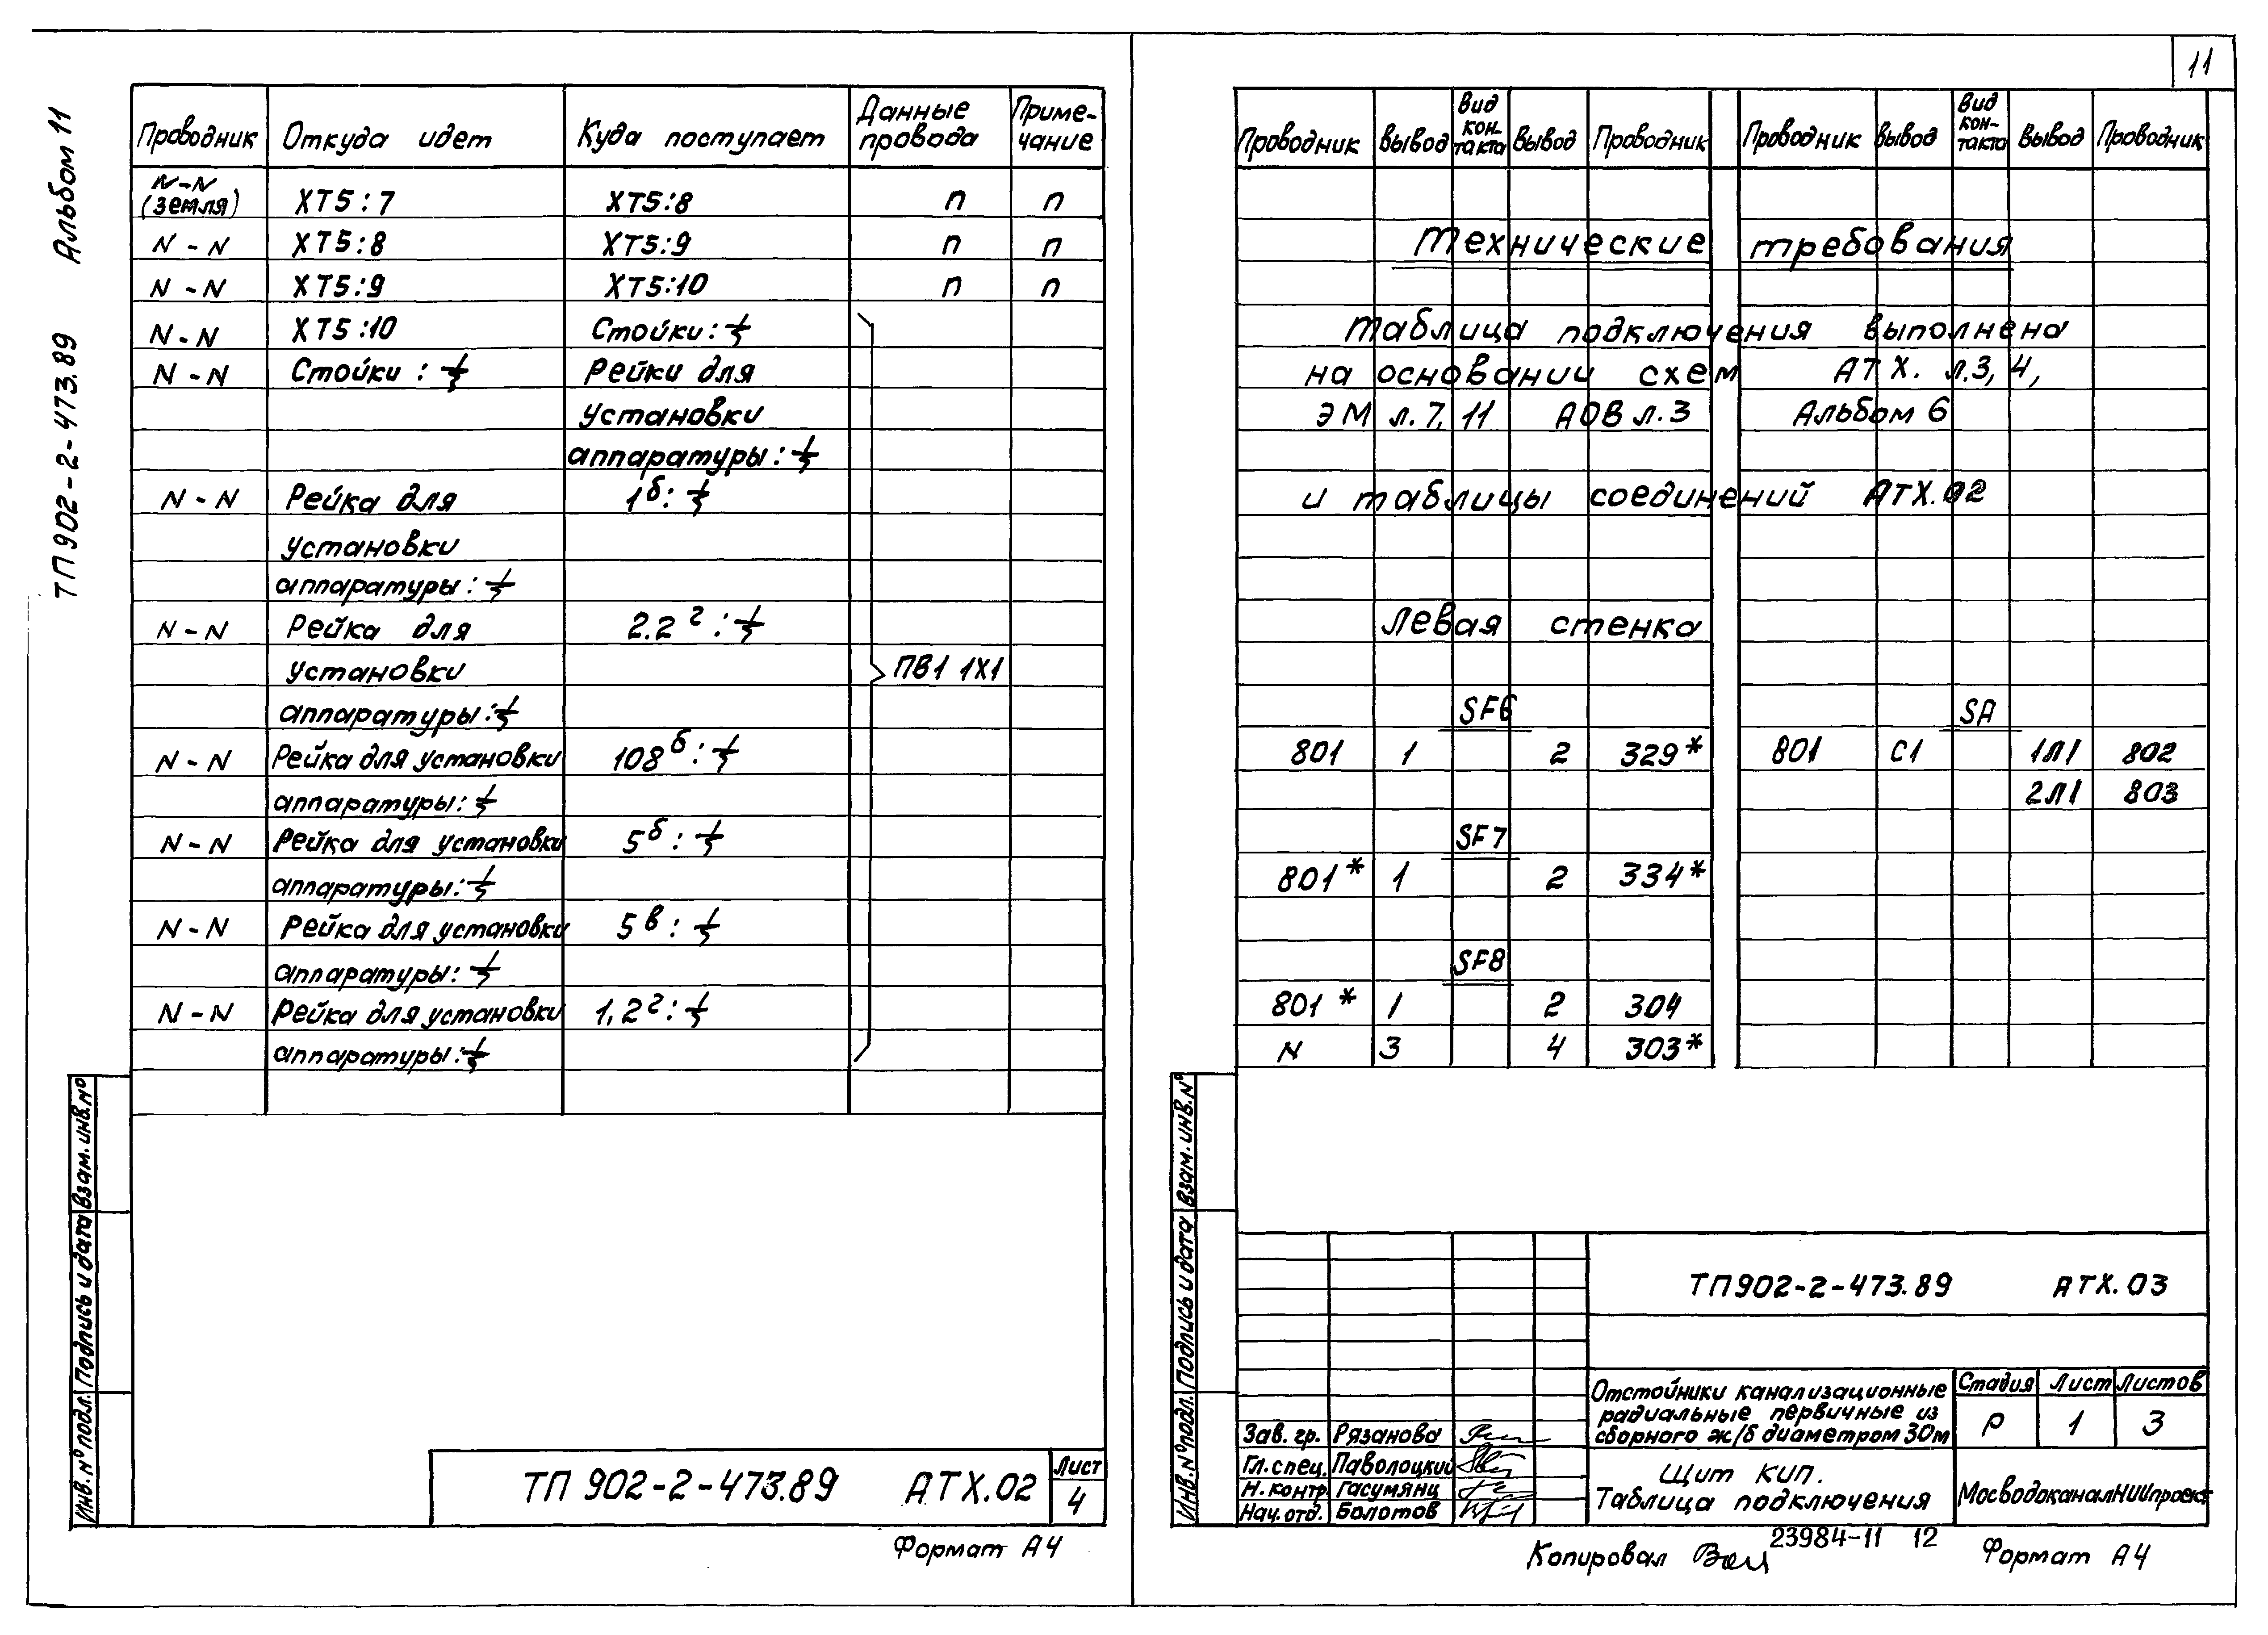 11
Альбом 11
ТП902-2-473.89
Проводник Откуда идет Куда поступает Данные провода Приме-чание
N-N (земля) ХТ5:7 ХТ5:8 п п
N-N ХТ5:8 ХТ5:9 п п
N-N ХТ5:9 ХТ5:10 п п
N-N ХТ5:10 Стойки:⏚
N-N Стойки:⏚ Рейки для
установки
аппаратуры:⏚
N-N Рейка для 1б:⏚
установки
аппаратуры:⏚
N-N Рейка для 2.2г:⏚
установки ПВ1 1Х1
аппаратуры:⏚
N-N Рейка для установки 108б:⏚
аппаратуры:⏚
N-N Рейка для установки 5б:⏚
аппаратуры:⏚
N-N Рейка для установки 5в:⏚
аппаратуры:⏚
N-N Рейка для установки 1,2г:⏚
аппаратуры:⏚
Инв.№ подл. Подпись и дата Взам.инв.№
ТП 902-2-473.89 АТХ.02
Лист
4
Формат А4
Проводник Вывод Вид кон-такта Вывод Проводник Проводник Вывод Вид кон-такта Вывод Проводник
Технические требования
Таблица подключения выполнена
на основании схем АТХ. л.3, 4,
ЭМ л.7, 11 АОВ л.3 Альбом 6
и таблицы соединений АТХ.02
Левая стенка
SF6 SA
801 1 2 329* 801 С1 1Л1 802
2Л1 803
SF7
801* 1 2 334*
SF8
801* 1 2 304
N 3 4 303*
Инв.№ подл. Подпись и дата Взам.инв.№
ТП902-2-473.89 АТХ.03
Отстойники канализационные
радиальные первичные из
сборного ж/б диаметром 30м
Стадия Лист Листов
Р 1 3
Зав. гр. Рязанова
Гл.спец. Паволоцкий
Н.контр. Гасумянц
Нач.отд. Болотов
Щит КИП.
Таблица подключения
МосводоканалНИИпроект
Копировал
23984-11 12
Формат А4